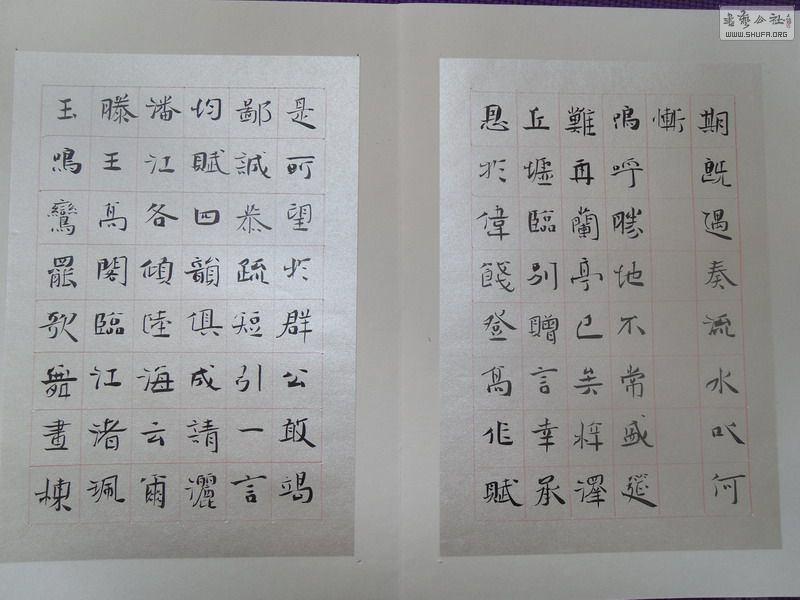 期既遇奏流水以何
慚
嗚呼勝地不常盛筵
難再蘭亭已矣梓澤
丘墟臨別贈言幸承
恩於偉餞登高作賦
是所望於群公敢竭
鄙誠恭疏短引一言
均賦四韻俱成請灑
潘江各傾陸海云爾
滕王高閣臨江渚珮
玉鳴鸞罷歌舞畫棟
書藝公社
WWW.SHUFA.ORG